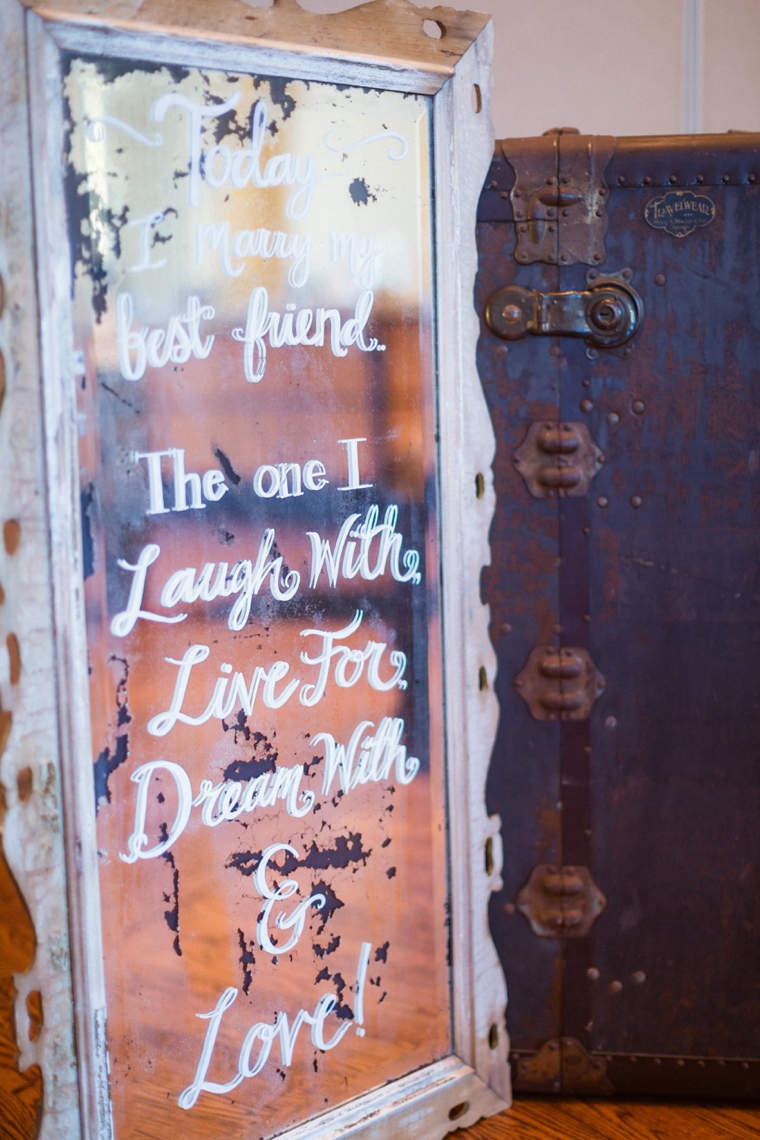 Today
I marry my
best friend..
The one I
Laugh With,
Live For,
Dream With
&
Love!
TRAVELWEAR